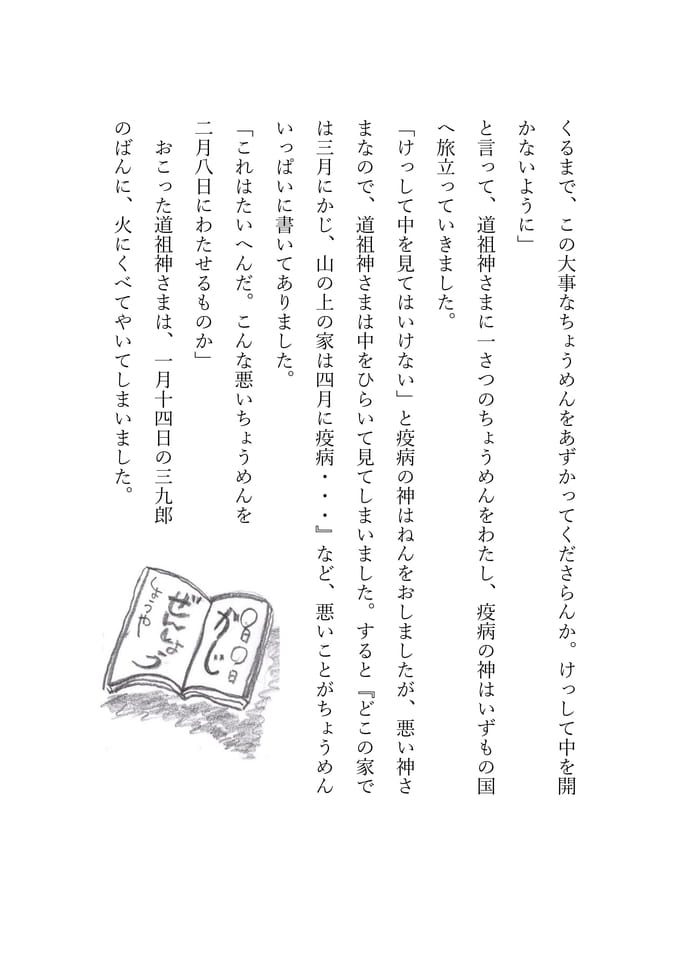 くるまで、この大事なちょうめんをあずかってくださらんか。けっして中を開
かないように」
と言って、道祖神さまに一さつのちょうめんをわたし、疫病の神はいずもの国
へ旅立っていきました。
「けっして中を見てはいけない」と疫病の神はねんをおしましたが、悪い神さ
まなので、道祖神さまは中をひらいて見てしまいました。すると『どこの家で
は三月にかじ、山の上の家は四月に疫病・・・』など、悪いことがちょうめん
いっぱいに書いてありました。
「これはたいへんだ。こんな悪いちょうめんを
二月八日にわたせるものか」
おこった道祖神さまは、一月十四日の三九郎
のばんに、火にくべてやいてしまいました。
〇日〇日
かじ
ぜんしょう